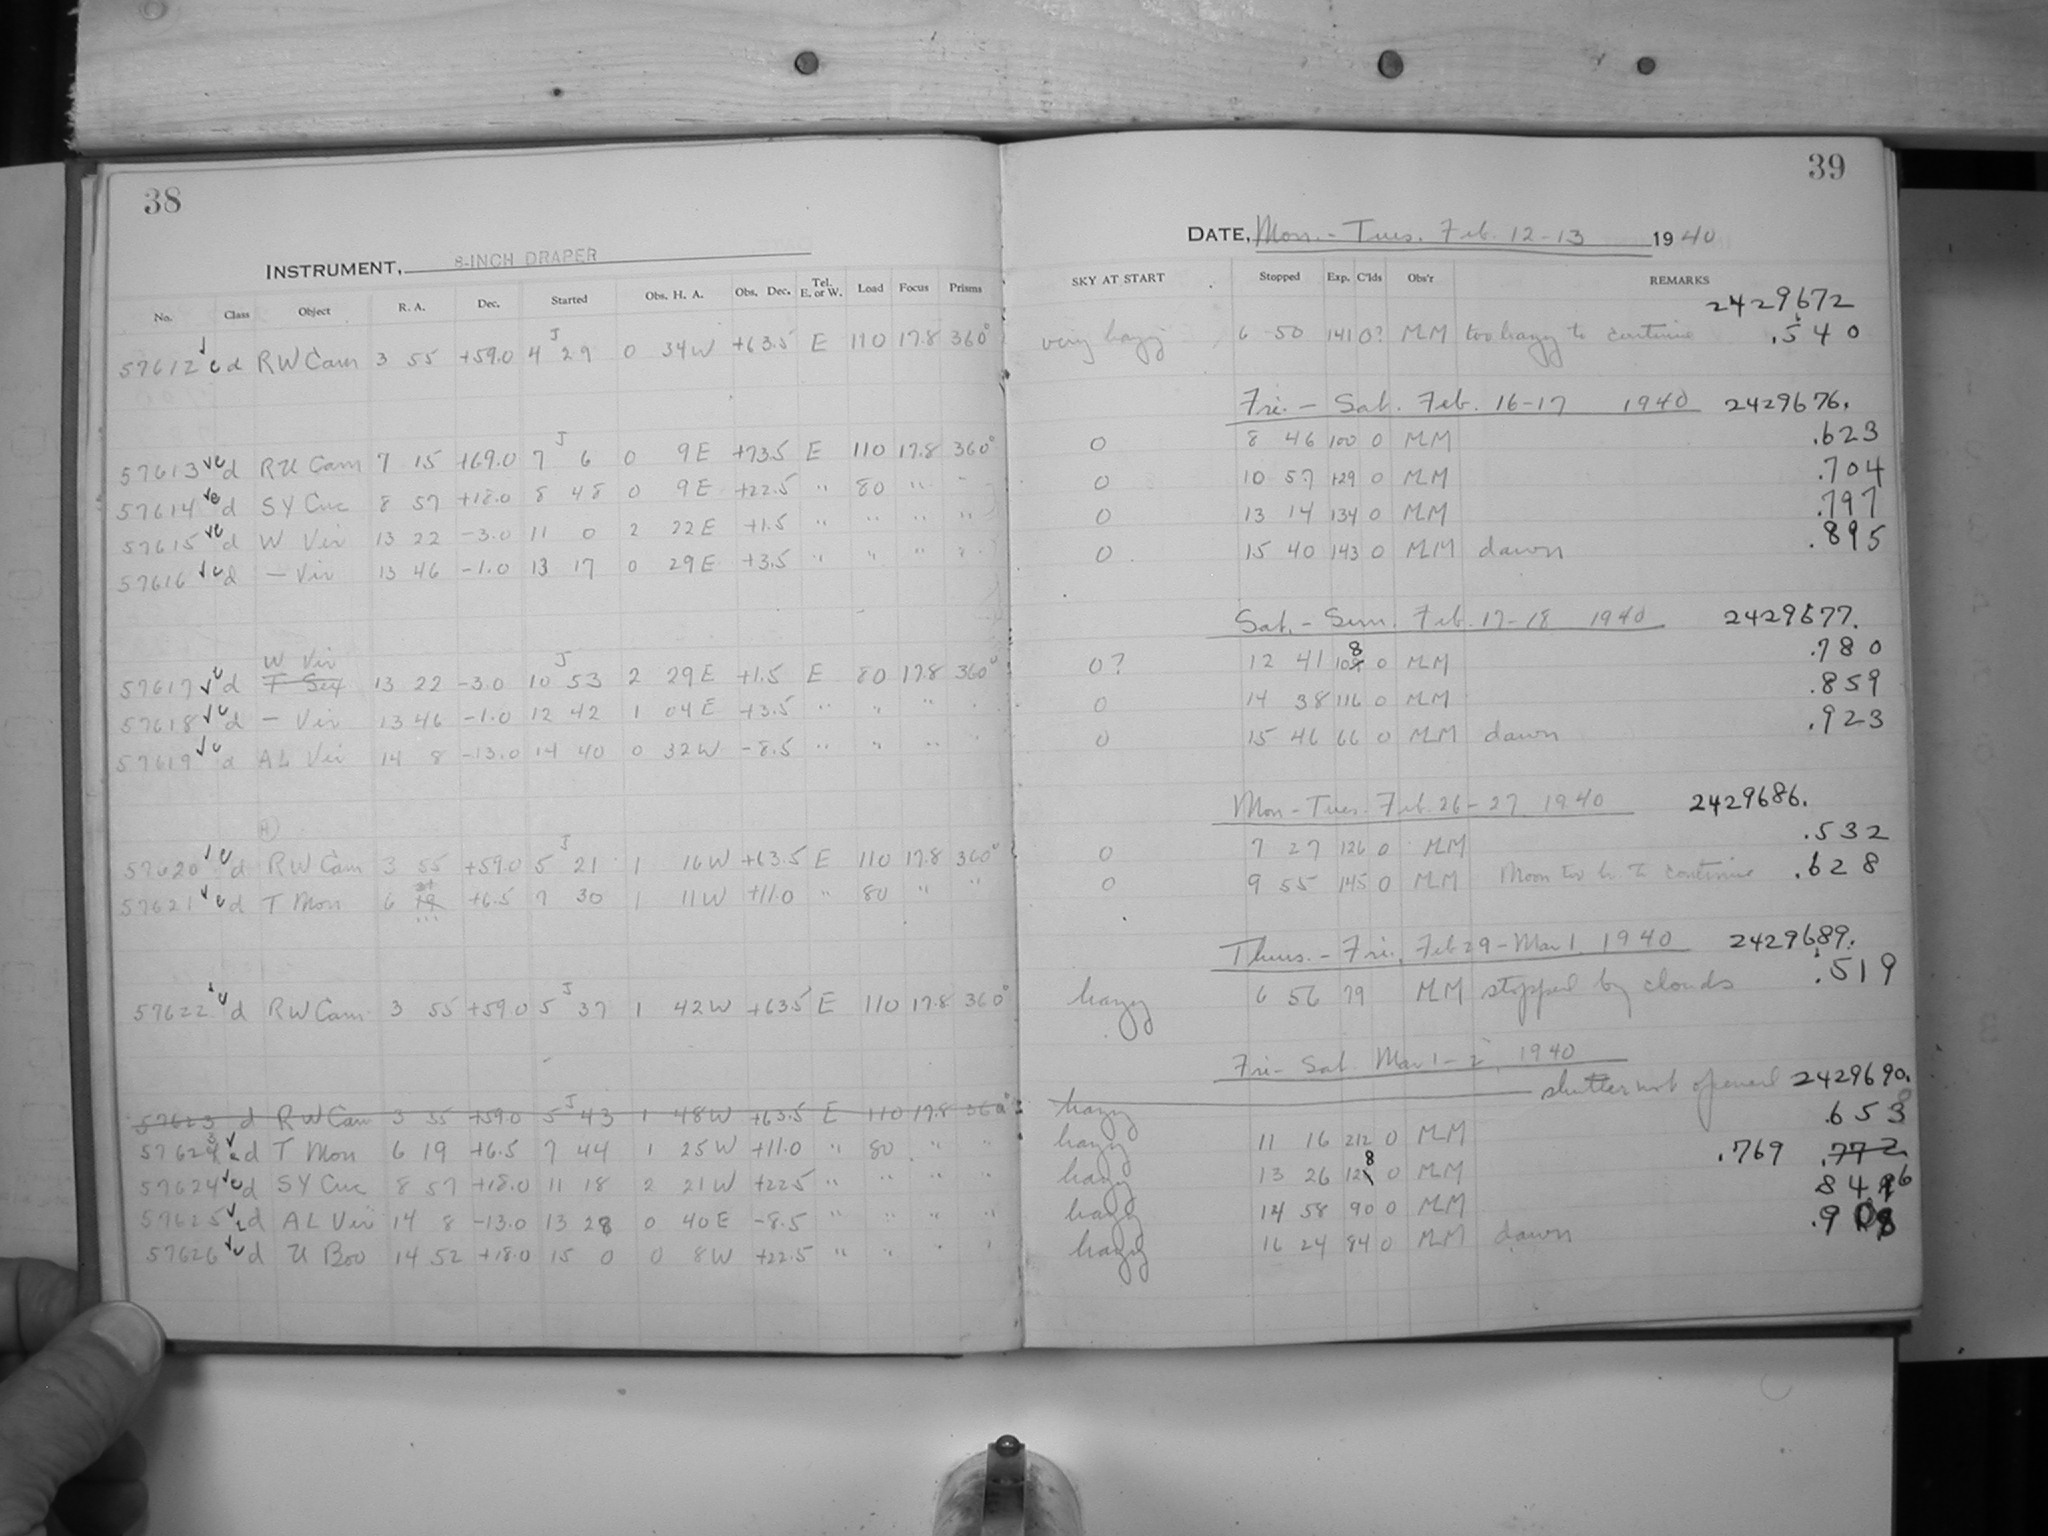 38
INSTRUMENT, 8-INCH DRAPER
No. Class Object R. A. Dec. Started Obs. H. A. Obs. Dec. Tel. E. or W. Load Focus Prisms
57612 c d RW Cam 3 55 +59.0 4 J 29 0 34W +63.5 E 110 17.8 360°
57613 c d RU Cam 7 15 +69.0 7 J 6 0 9E +73.5 E 110 17.8 360°
57614 c d SY Cnc 8 57 +18.0 8 48 0 9E +22.5 " 80 " "
57615 c d W Vir 13 22 -3.0 11 0 2 22E +1.5 " " " "
57616 c d — Vir 13 46 -1.0 13 17 0 29E +3.5 " " " "
W Vir
57617 c d T Sex 13 22 -3.0 10 J 53 2 29E +1.5 E 80 17.8 360°
57618 c d — Vir 13 46 -1.0 12 42 1 04E +3.5 " " " "
57619 c d AL Vir 14 8 -13.0 14 40 0 32W -8.5 " " " "
(H)
57620 c d RW Cam 3 55 +59.0 5 J 21 1 16W +63.5 E 110 17.8 360°
57621 c d T Mon 6 19 +6.5 7 30 1 11W +11.0 " 80 " "
57622 c d RW Cam 3 55 +59.0 5 J 37 1 42W +63.5 E 110 17.8 360°
57623 d RW Cam 3 55 +59.0 5 J 43 1 48W +63.5 E 110 17.8 360°
57623 c d T Mon 6 19 +6.5 7 44 1 25W +11.0 " 80 " "
57624 c d SY Cnc 8 57 +18.0 11 18 2 21W +22.5 " " " "
57625 c d AL Vir 14 8 -13.0 13 28 0 40E -8.5 " " " "
57626 c d U Boo 14 52 +18.0 15 0 0 8W +22.5 " " " "
39
DATE, Mon. - Tues. Feb. 12-13 1940
SKY AT START Stopped Exp. C'lds Obs'r REMARKS
2429672
very hazy 6 50 141 0? MM too hazy to continue .540
Fri. - Sat. Feb. 16-17 1940 2429676.
0 8 46 100 0 MM .623
0 10 57 129 0 MM .704
0 13 14 134 0 MM .797
0 15 40 143 0 MM dawn .895
Sat. - Sun. Feb. 17-18 1940 2429677.
0? 12 41 108 0 MM .780
0 14 38 116 0 MM .859
0 15 46 66 0 MM dawn .923
Mon - Tues. Feb. 26-27 1940 2429686.
0 7 27 126 0 MM .532
0 9 55 145 0 MM Moon too to continue .628
Thurs. - Fri. Feb 29 - Mar 1, 1940 2429689.
hazy 6 56 79 MM stopped by clouds .519
Fri - Sat. Mar 1-2, 1940
hazy shutter not opened 2429690.
hazy 11 16 212 0 MM .653
hazy 13 26 128 0 MM .769 .772
hazy 14 58 90 0 MM 846
hazy 16 24 84 0 MM dawn .908